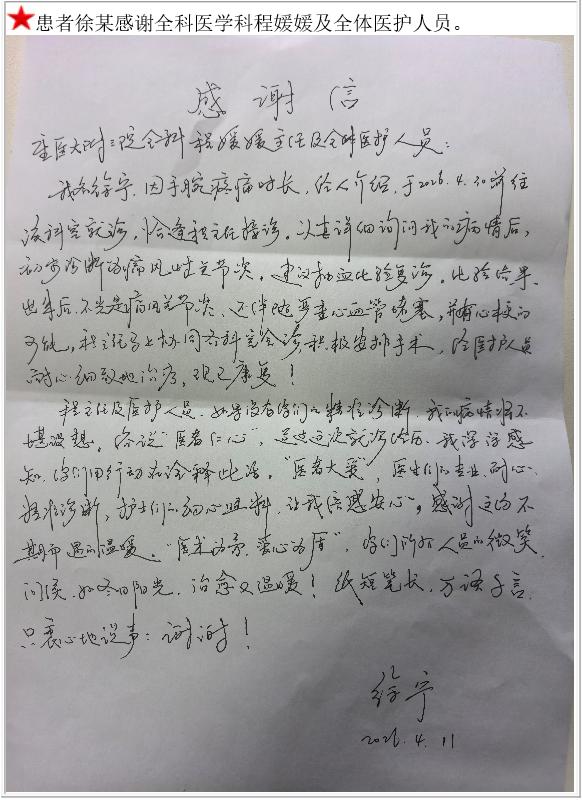 患者徐某感谢全科医学科程媛媛及全体医护人员。
感谢信
重医大附三院全科程媛媛主任及全体医护人员：
我名徐宁，因手腕疼痛时长，经人介绍，于2026.4.30前往
该科室就诊，恰逢程主任接诊。认真详细询问我的病情后，
初步诊断为痛风性关节炎，建议抽血化验复诊。化验结果
出来后，不光是痛风关节炎，还伴随严重心血管堵塞，并有心梗的
可能，程主任马上协同各科室会诊，积极安排手术，经医护人员
耐心细致地治疗，现已康复！
程主任及医护人员，如果没有你们的精准诊断，我的病情将不
堪设想。俗说“医者仁心”，通过这次就诊经历，我深深感
知，你们用行动在诠释此话。“医者大爱”，医生们的专业、耐心、
精准诊断，护士们的细心照料，让我倍感安心”。感谢这场不
期而遇的温暖。“医术为矛，爱心为盾”，你们所有人员的微笑
问候，如冬日阳光，治愈又温暖！纸短笔长，万语千言，
只衷心地说声：谢谢！
徐宁
2026.4.11